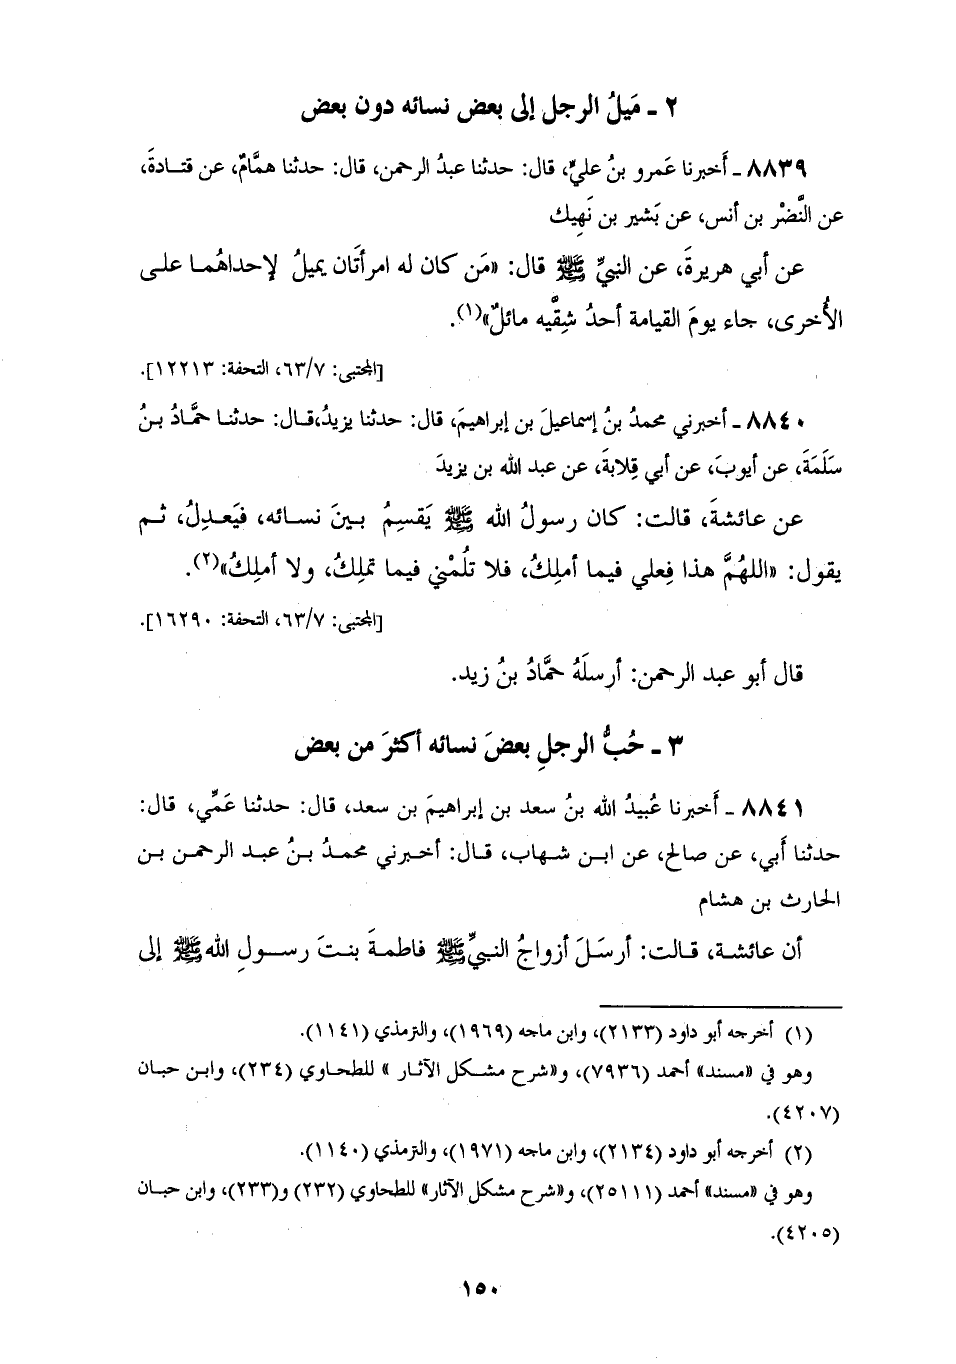 ٢ ـ مَيلُ الرجل إلى بعض نسائه دون بعض
٨٨٣٩ ـ أَخبرنا عَمرو بنُ عليٍّ، قال: حدثنا عبدُ الرحمن، قال: حدثنا همَّامٌ، عن قتـادةَ،
عن النَّضْر بن أنس، عن بَشير بن نَهِيك
عن أبي هريرةَ، عن النبيِّ ﷺ قال: «مَن كان له امرأتَان يميلُ لإحداهُمـا علـى
الأُخرى، جاء يومَ القيامة أحدُ شِقَّيه مائلٌ»(١).
[المجتبى: ٦٣/٧، التحفة: ١٢٢١٣].
٨٨٤٠ ـ أخبرني محمدُ بنُ إسماعيلَ بن إبراهيمَ، قال: حدثنا يزيدُ،قـال: حدثنـا حمَّـادُ بـنُ
سَلَمَةَ، عن أيوبَ، عن أبي قِلابةَ، عن عبد الله بن يزيدَ
عن عائشةَ، قالت: كان رسولُ الله ﷺ يَقسِمُ بـينَ نسـائه، فيَعـدِلُ، ثـم
يقول: «اللهُمَّ هذا فِعلي فيما أملِكُ، فلا تلُمْني فيما تملِكُ، ولا أملِكُ»(٢).
[المجتبى: ٦٣/٧، التحفة: ١٦٢٩٠].
قال أبو عبد الرحمن: أرسلَهُ حمَّادُ بنُ زيد.
٣ ـ حُبُّ الرجلِ بعضَ نسائه أكثرَ من بعض
٨٨٤١ ـ أَخبرنا عُبيدُ الله بنُ سعد بن إبراهيمَ بن سعد، قال: حدثنا عَمِّي، قال:
حدثنا أَبي، عن صالح، عن ابـن شـهاب، قـال: أخـبرني محمـدُ بـنُ عبـد الرحمـن بـن
الحارث بن هشام
أن عائشـة، قـالت: أرسَـلَ أزواجُ النـبيِّ ﷺ فاطمـةَ بنـتَ رسـولِ الله ﷺ إلى
(١) أخرجه أبو داود (٢١٣٣)، وابن ماجه (١٩٦٩)، والترمذي (١١٤١).
وهو في «مسند» أحمد (٧٩٣٦)، و«شرح مشـكل الآثـار » للطحـاوي (٢٣٤)، وابـن حبـان
(٤٢٠٧).
(٢) أخرجه أبو داود (٢١٣٤)، وابن ماجه (١٩٧١)، والترمذي (١١٤٠).
وهو في «مسند» أحمد (٢٥١١١)، و«شرح مشكل الآثار» للطحاوي (٢٣٢) و(٢٣٣)، وابن حبـان
(٤٢٠٥).
١٥٠